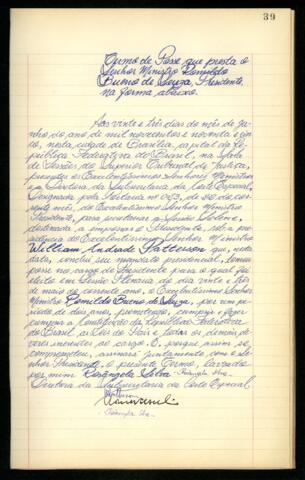 39
Termo de Posse que presta o
Senhor Ministro Romildo
Bueno de Souza, Presidente,
na forma abaixo.
Aos vinte e três dias do mês de ju-
nho do ano de mil novecentos e noventa e cin-
co, nesta cidade de Brasília, capital da Re-
pública Federativa do Brasil, na Sala
de Sessões do Superior Tribunal de Justiça,
presentes os Excelentíssimos Senhores Ministros
e a Diretora da Subsecretaria da Corte Especial,
designada pela Portaria nº de 20 do cor-
rente mês, do Excelentíssimo Senhor Ministro
Presidente, para secretariar a Sessão Solene,
destinada a empossar o Presidente, sob a pre-
sidência do Excelentíssimo Senhor Ministro
William Andrade Patterson que, nesta
data, conclui seu mandato presidencial, tomou
posse no cargo de Presidente para o qual foi
eleito em Sessão Plenária do dia vinte e três
de maio do corrente ano, o Excelentíssimo Senhor
Ministro Romildo Bueno de Souza, por um pe-
ríodo de dois anos, prometendo, cumprir e fazer
cumprir a Constituição da República Federativa
do Brasil, as Leis do País e todos os demais de-
veres inerentes ao cargo. E, porque assim se
comprometeu, assinará juntamente com o Se-
nhor Presidente, o presente Termo, lavrado
por mim Rosângela Silva
Diretora da Subsecretaria da Corte Especial.